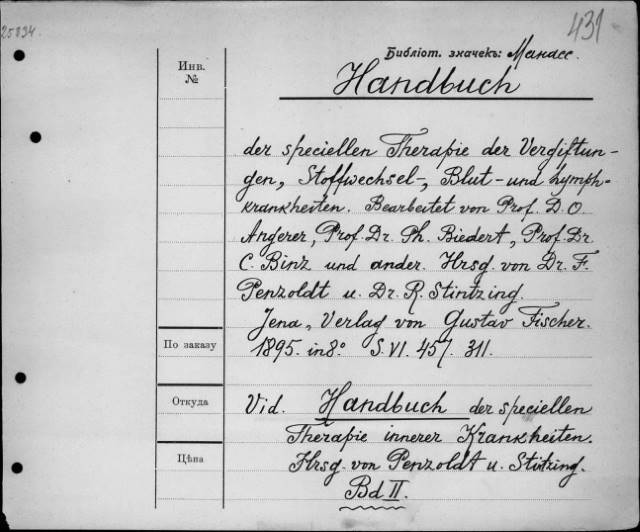 25834.
431
Библіот. значекъ: Манасс.
Инв.
№
Handbuch
der speciellen Therapie der Vergiftun-
gen, Stoffwechsel-, Blut- und Lymph-
krankheiten. Bearbeitet von Prof. D. O.
Angerer, Prof. Dr. Ph. Biedert, Prof. Dr.
C. Binz und ander. Hrsg. von Dr. F.
Penzoldt u. Dr. R. Stintzing.
Jena, Verlag von Gustav Fischer.
По заказу
1895. in 8° S. VI. 457. 311.
Откуда
Vid. Handbuch der speciellen
Therapie innerer Krankheiten.
Цѣна
Hrsg. von Penzoldt u. Stitzing.
Bd II.